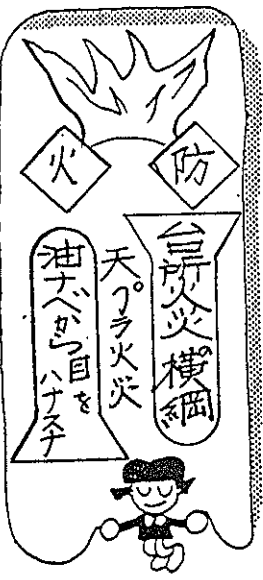 防火
台所火災横綱
天プラ火災
油ナベから目を
ハナスナ